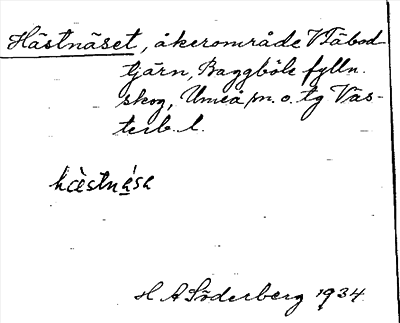 Hästnäset, åkerområde V Täbod-
tjärn, Baggböle fylln.
skog, Umeå m. o. tg Väs-
terb. l.
hæ̀stnása
H A Söderberg 1934